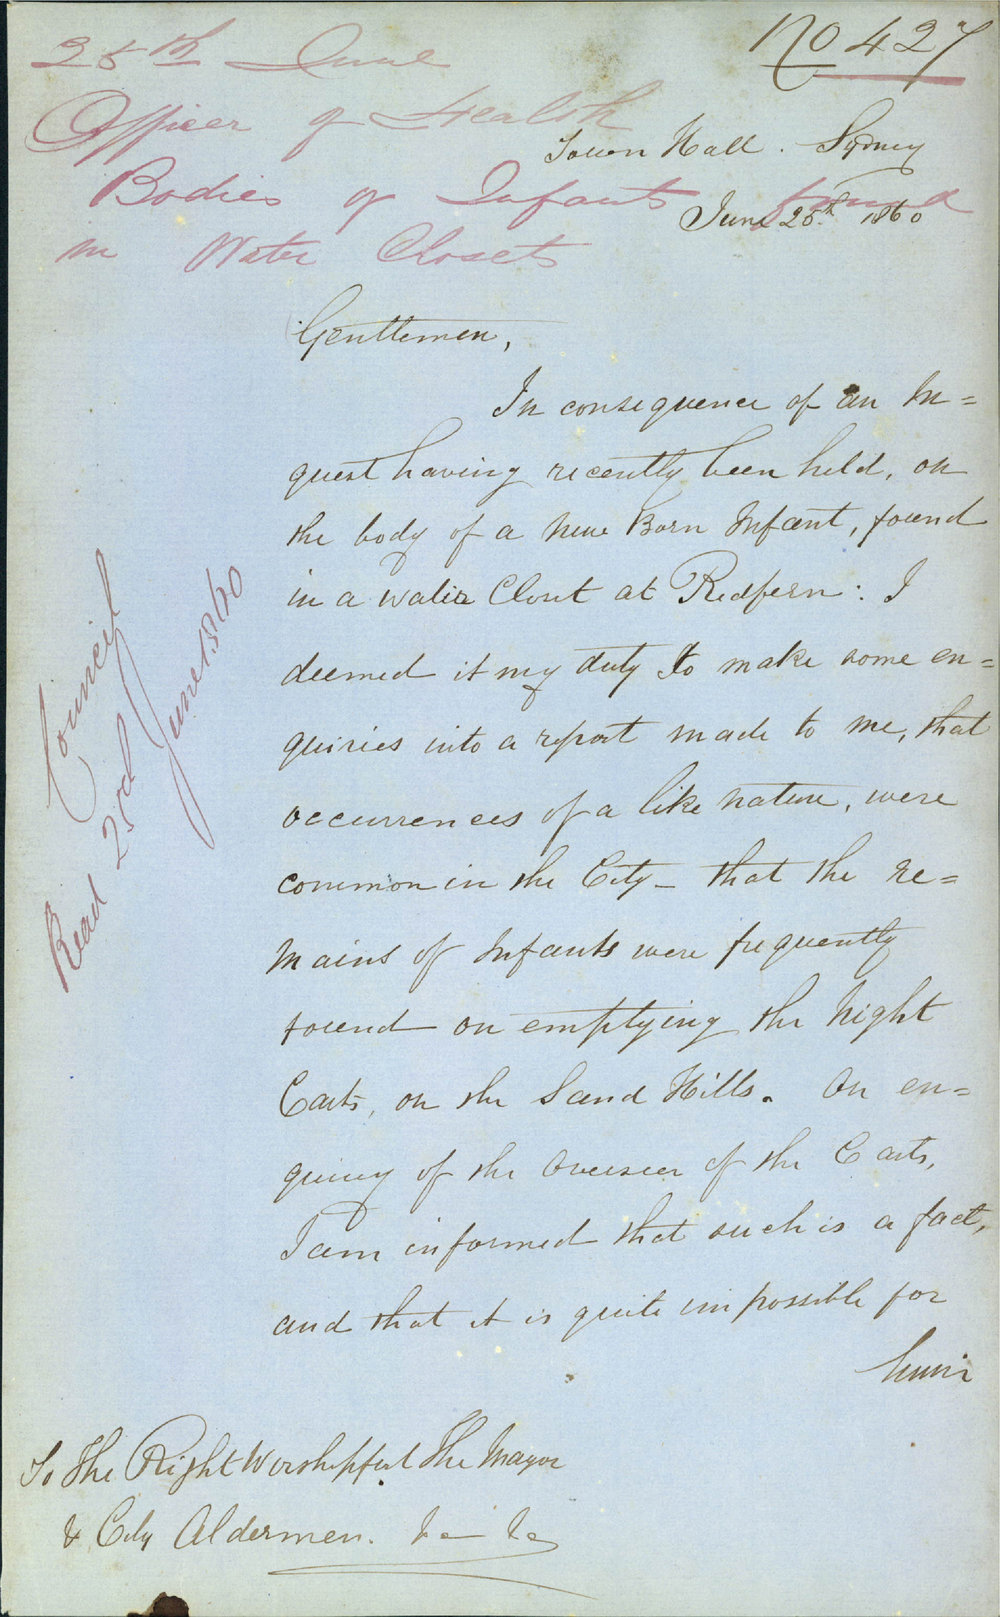 No 427
25th June
Officer of Health
Bodies of Infants found
in Water Closets
Town Hall. Sydney
June 25th 1860
Gentlemen,
In consequence of an In=
quest having recently been held, on
the body of a New Born Infant, found
in a water Closet at Redfern: I
deemed it my duty to make some en=
quiries into a report made to me, that
occurrences of a like nature, were
common in the City - that the re=
mains of Infants were frequently
found on emptying the Night
Carts, on the Sand Hills. On en=
quiry of the Overseer of the Carts,
I am informed that such is a fact,
and that it is quite impossible for
Council
Read 25th June 1860
To The Right Worshipful The Mayor
& City Aldermen. &c &c